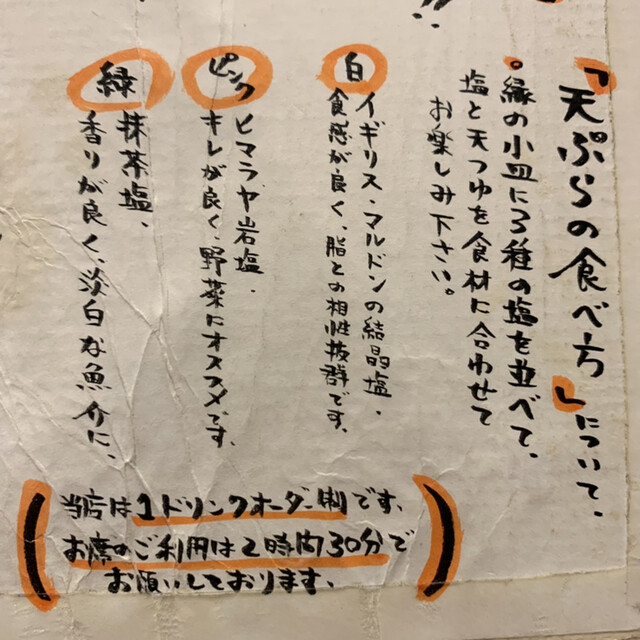 『天ぷらの食べ方』について、
。縁の小皿に3種の塩を並べて、
塩と天つゆを食材に合わせて
お楽しみ下さい。
白
イギリス・マルドンの結晶塩、
食感が良く、脂との相性抜群です、
ピンク
ヒマラヤ岩塩、
キレが良く、野菜にオススメです、
緑
抹茶塩、
香りが良く、淡白な魚介に、
当店は1ドリンクオーダー制です、
お席のご利用は2時間30分で
お願いしております、
!!